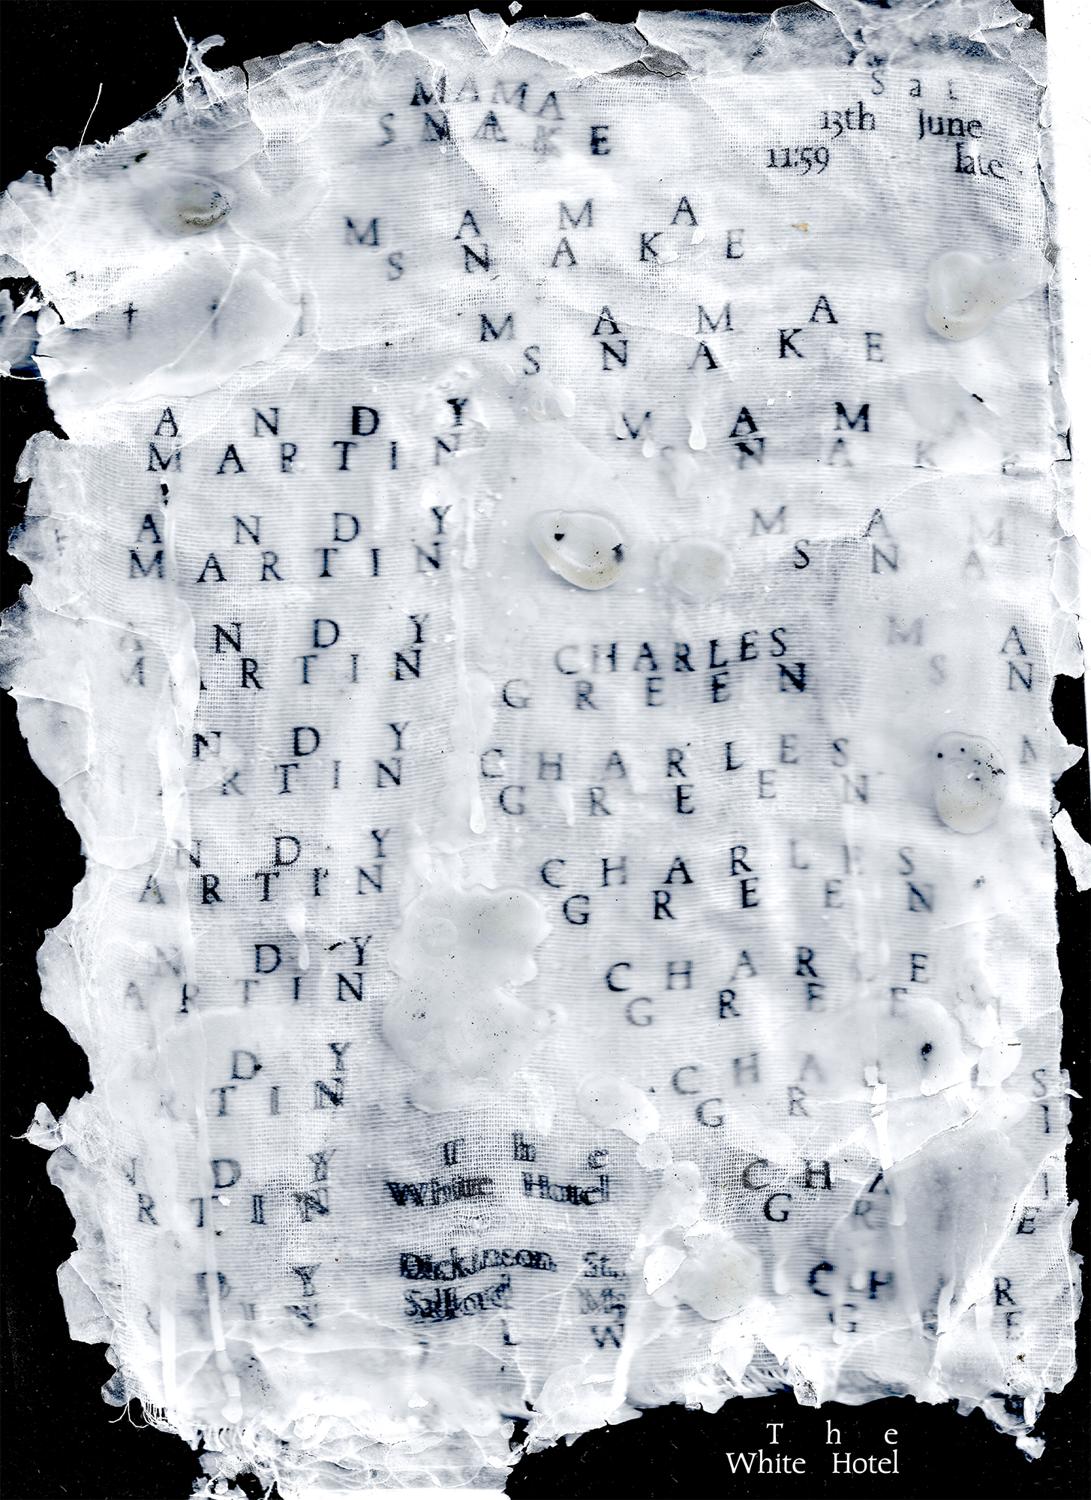 MAMA
SNAKE
Sat
13th June
11:59 late
MAMA
SNAKE
MAMA
SNAKE
ANDY
MARTIN
MAM
SNAKE
ANDY
MARTIN
MAM
SNA
ANDY
MARTIN
MA
SN
CHARLES
GREEN
NDY
RTIN
CHARLES
GREEN
NDY
ARTIN
CHARLES
GREEN
NDY
ARTIN
CHARLE
GREE
DY
RTIN
CHA
GR
NDY
RTIN
CHA
GR
The
White Hotel
DY
Dickinson St.
Salford
CH
G
R
E
W
The
White Hotel